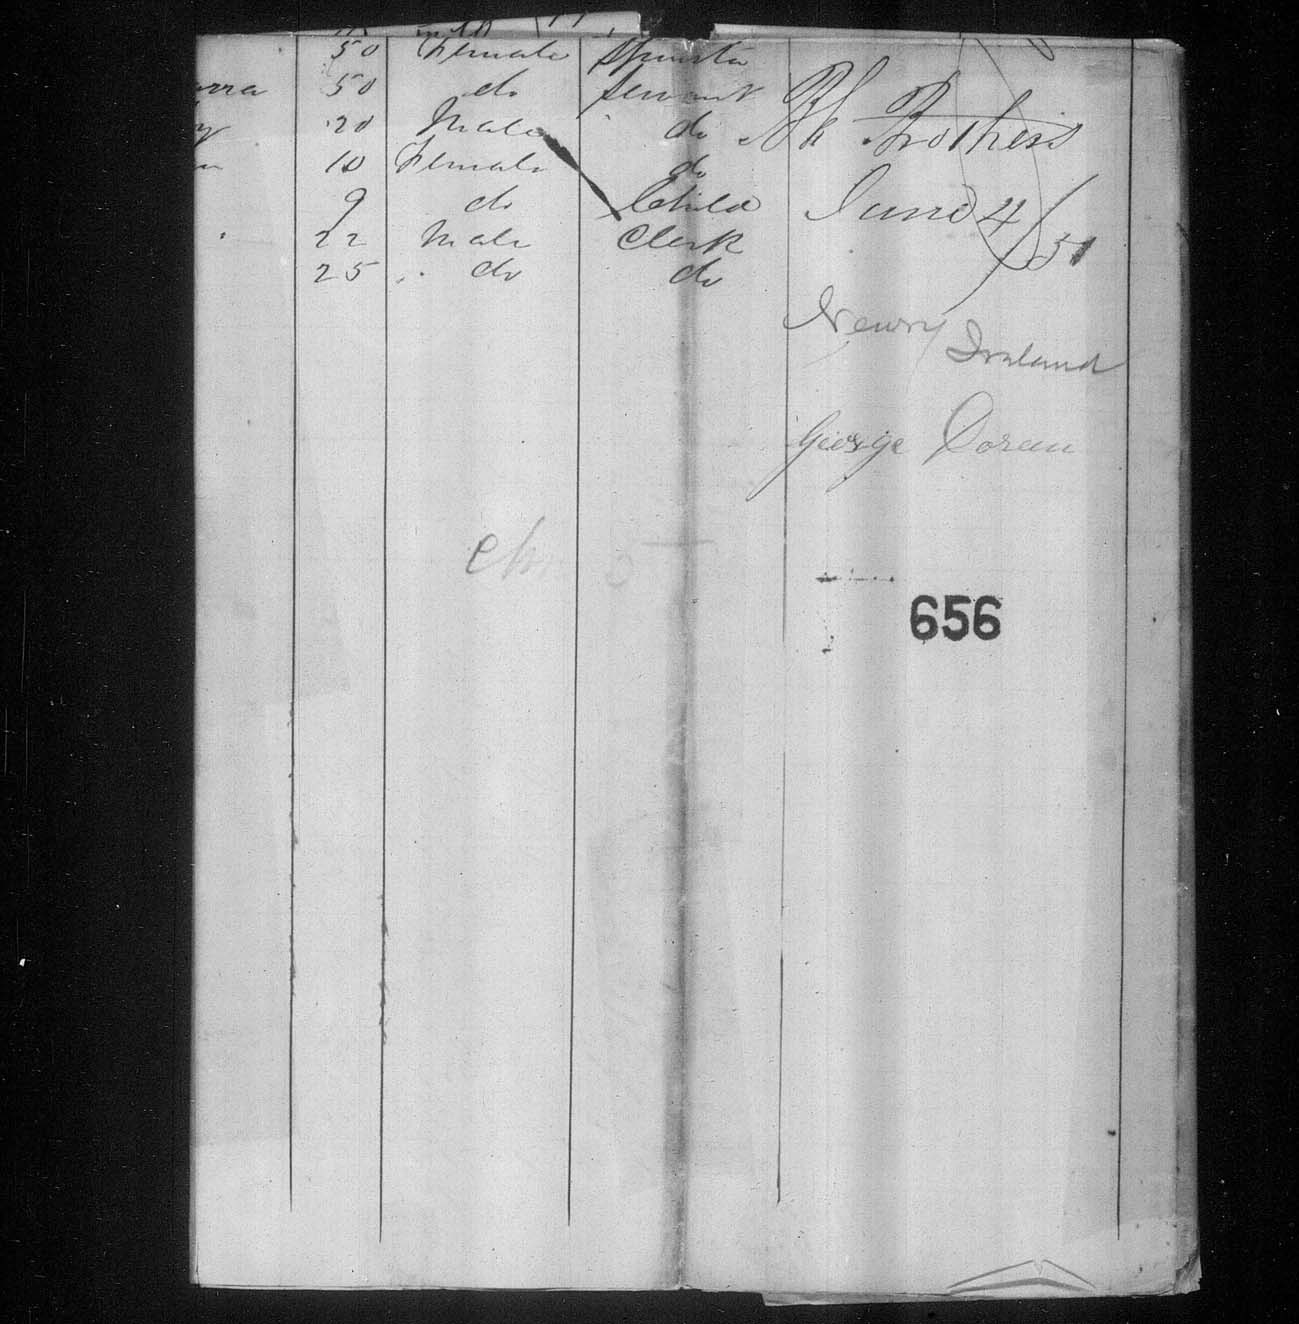 50 Female Spinster
50 do Servant
20 Male do
10 Female do
9 do Child
22 Male Clerk
25 do do
Bk Brothers
June 4/51
Newry Ireland
George Doran
656